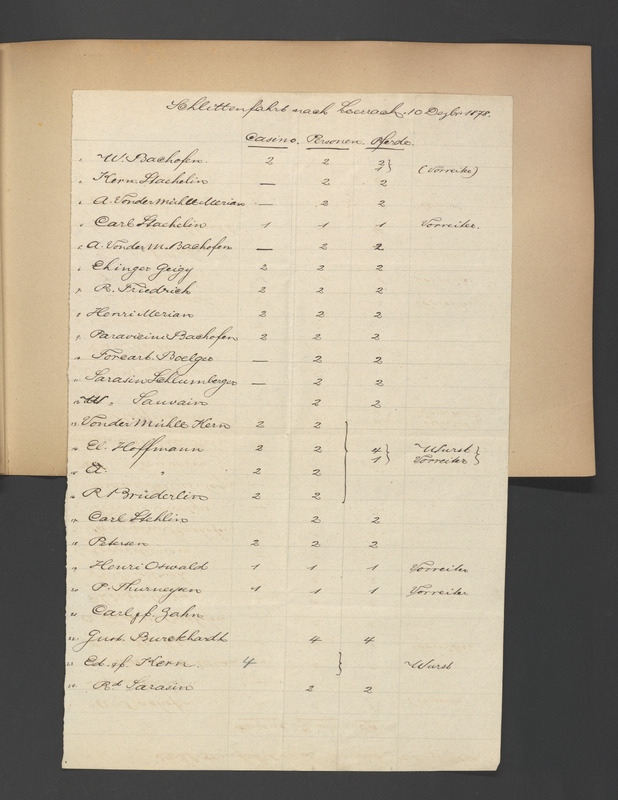 Schlittenfahrt nach Loerrach. 10 Dezbr 1878.
Casino. Personen Pferde.
1. W. Bachofen 2 2 2 } 1 (Vorreiter)
2. Kern Staehelin — 2 2
3. A. VonderMühll Merian — 2 2
4. Carl Staehelin 1 1 1 Vorreiter.
5. A. Vonder M. Bachofen — 2 2
6. Ehinger Geigy 2 2 2
7. R. Friedrich 2 2 2
8. Henri Merian 2 2 2
9. Paravicini Bachofen 2 2 2
10. Forcart Boelger — 2 2
11. Sarasin Schlumberger — 2 2
12. " Sauvain 2 2
13. Vonder Mühll Kern 2 2
14. El. Hoffmann 2 2 4 } Wurst }
15. A. " 2 2 1 } Vorreiter }
16. R Brüderlin 2 2
17. Carl Stehlin 2 2
18. Petersen 2 2 2
19. Henri Oswald 1 1 1 Vorreiter
20. P. Thurneysen 1 1 1 Vorreiter
21. Carl Zahn
22. Gust. Burckhardt 4 4
23. Ed. Kern. 4 } Wurst
24. Rd Sarasin 2 2